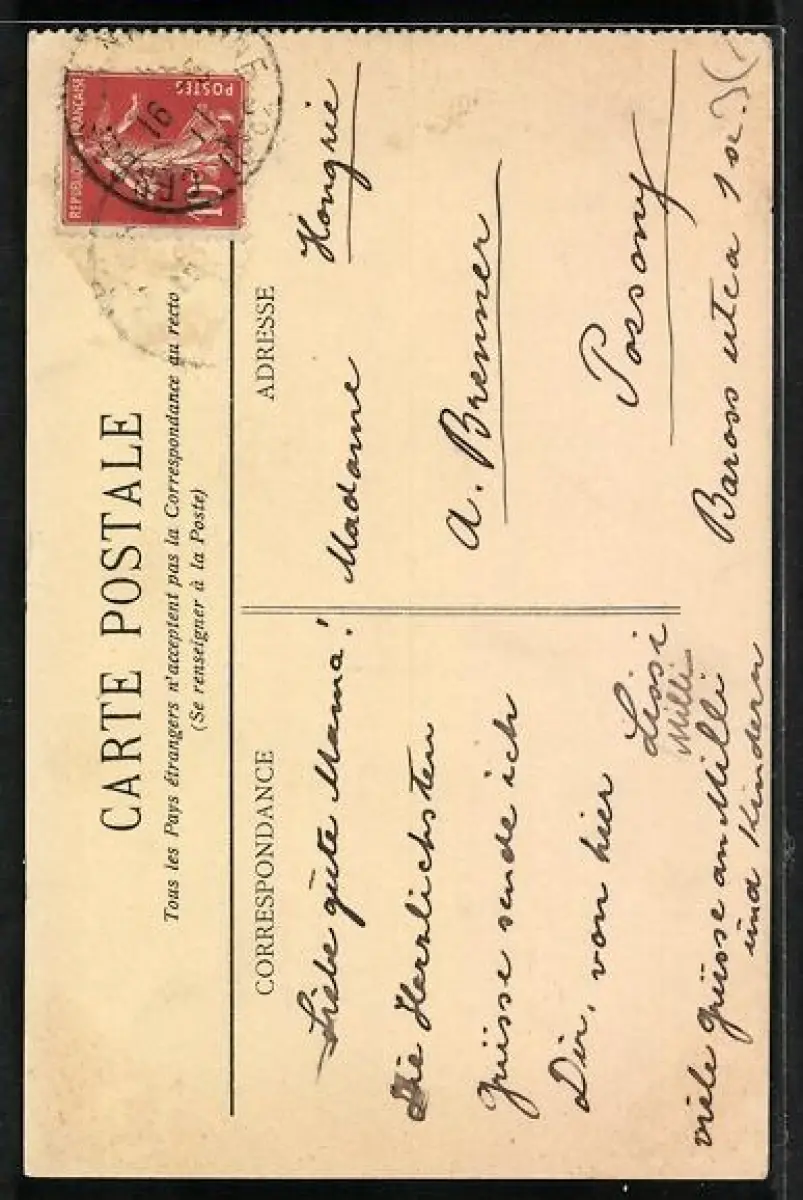 CARTE POSTALE
Tous les Pays étrangers n'acceptent pas la Correspondance au recto
(Se renseigner à la Poste)
REPUBLIQUE FRANÇAISE
POSTES
10c
CORRESPONDANCE
Liebe gute Mama!
Die Herzlichsten
Grüsse sende ich
Dir, von hier
Lissi
Milli
viele Grüsse an Milli
und Kindern
ADRESSE
Madame Hongrie
A. Brenner
Possony
Baross utca 1 sz.